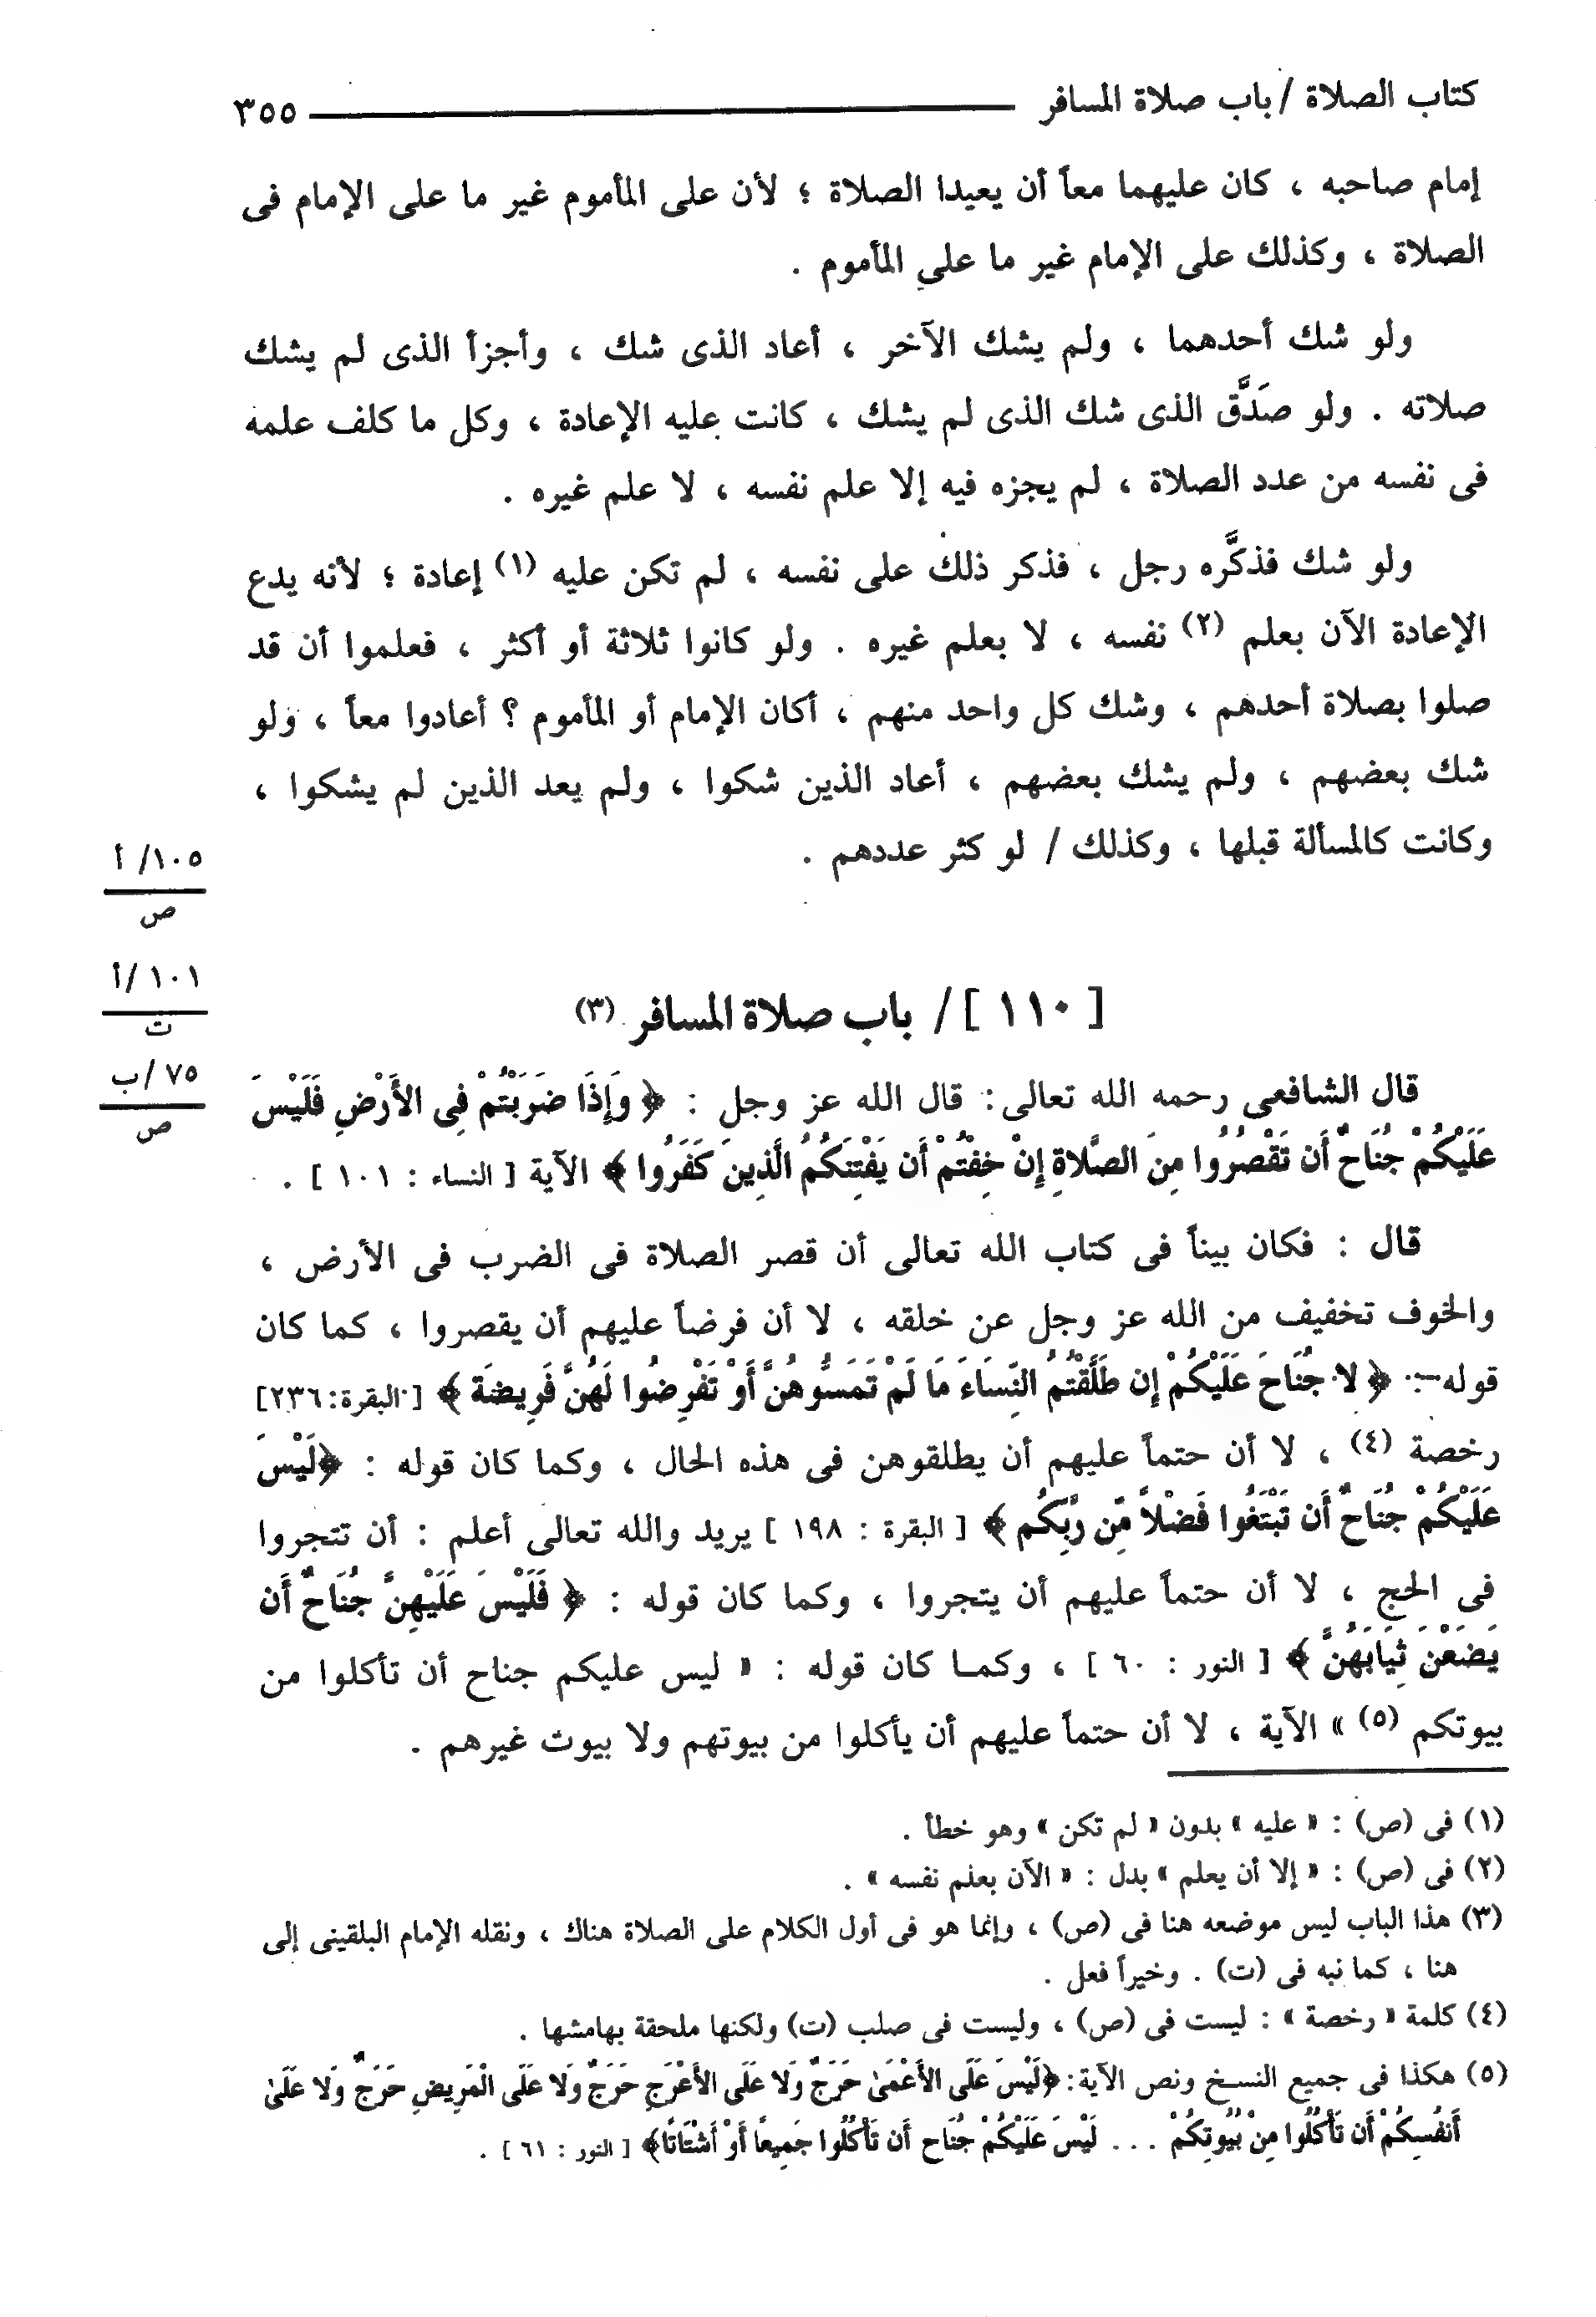 كتاب الصلاة / باب صلاة المسافر ٣٥٥
إمام صاحبه ، كان عليهما معاً أن يعيدا الصلاة ؛ لأن على المأموم غير ما على الإمام فى
الصلاة ، وكذلك على الإمام غير ما على المأموم .
ولو شك أحدهما ، ولم يشك الآخر ، أعاد الذى شك ، وأجزأ الذى لم يشك
صلاته . ولو صَدَّق الذى شك الذى لم يشك ، كانت عليه الإعادة ، وكل ما كلف علمه
فى نفسه من عدد الصلاة ، لم يجزه فيه إلا علم نفسه ، لا علم غيره .
ولو شك فذكَّره رجل ، فذكر ذلك على نفسه ، لم تكن عليه (١) إعادة ؛ لأنه يدع
الإعادة الآن بعلم (٢) نفسه ، لا بعلم غيره . ولو كانوا ثلاثة أو أكثر ، فعلموا أن قد
صلوا بصلاة أحدهم ، وشك كل واحد منهم ، أكان الإمام أو المأموم ؟ أعادوا معاً ، ولو
شك بعضهم ، ولم يشك بعضهم ، أعاد الذين شكوا ، ولم يعد الذين لم يشكوا ،
وكانت كالمسألة قبلها ، وكذلك / لو كثر عددهم .
١٠٥/ أ
ص
١٠١ /أ
ت
[ ١١٠ ] / باب صلاة المسافر (٣)
٧٥ /ب
ص
قال الشافعى رحمه الله تعالى : قال الله عز وجل : ﴿ وَإِذَا ضَرَبْتُمْ فِى الأَرْضِ فَلَيْسَ
عَلَيْكُمْ جُنَاحٌ أَن تَقْصُرُوا مِنَ الصَّلاةِ إِنْ خِفْتُمْ أَن يَفْتِنَكُمُ الَّذِينَ كَفَرُوا ﴾ الآية [ النساء : ١٠١ ] .
قال : فكان بيناً فى كتاب الله تعالى أن قصر الصلاة فى الضرب فى الأرض ،
والخوف تخفيف من الله عز وجل عن خلقه ، لا أن فرضاً عليهم أن يقصروا ، كما كان
قوله : ﴿ لا جُنَاحَ عَلَيْكُمْ إِن طَلَّقْتُمُ النِّسَاءَ مَا لَمْ تَمَسُّوهُنَّ أَوْ تَفْرِضُوا لَهُنَّ فَرِيضَةً ﴾ [ البقرة: ٢٣٦]
رخصة (٤) ، لا أن حتماً عليهم أن يطلقوهن فى هذه الحال ، وكما كان قوله : ﴿لَيْسَ
عَلَيْكُمْ جُنَاحٌ أَن تَبْتَغُوا فَضْلاً مِّن رَّبِّكُم ﴾ [ البقرة : ١٩٨ ] يريد والله تعالى أعلم : أن تتجروا
فى الحج ، لا أن حتماً عليهم أن يتجروا ، وكما كان قوله : ﴿ فَلَيْسَ عَلَيْهِنَّ جُنَاحٌ أَن
يَضَعْنَ ثِيَابَهُنَّ ﴾ [ النور : ٦٠ ] ، وكمـا كان قوله : « ليس عليكم جناح أن تأكلوا من
بيوتكم (٥) » الآية ، لا أن حتماً عليهم أن يأكلوا من بيوتهم ولا بيوت غيرهم .
(١) فى (ص) : « عليه » بدون « لم تكن » وهو خطأ .
(٢) فى (ص) : « إلا أن يعلم » بدل : « الآن بعلم نفسه » .
(٣) هذا الباب ليس موضعه هنا فى (ص) ، وإنما هو فى أول الكلام على الصلاة هناك ، ونقله الإمام البلقينى إلى
هنا ، كما نبه فى (ت) . وخيراً فعل .
(٤) كلمة « رخصة » : ليست فى (ص) ، وليست فى صلب (ت) ولكنها ملحقة بهامشها .
(٥) هكذا فى جميع النسـخ ونص الآية: ﴿لَيْسَ عَلَى الأَعْمَىٰ حَرَجٌ وَلا عَلَى الأَعْرَجِ حَرَجٌ وَلا عَلَى الْمَرِيضِ حَرَجٌ وَلا عَلَىٰ
أَنفُسِكُمْ أَن تَأْكُلُوا مِنْ بُيُوتِكُمْ . . . لَيْسَ عَلَيْكُمْ جُنَاح أَن تَأْكُلُوا جَمِيعًا أَوْ أَشْتَاتًا﴾ [ النور : ٦١ ] .